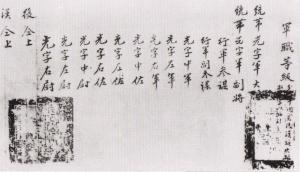 軍職等級
統軍光字軍大
統軍光字軍副將
行軍參謀
行軍副參謀
光字中軍
光字左軍
光字右軍
光字中佐
光字左佐
光字右佐
光字中尉
光字左尉
光字右尉
復仝上
漢仝上